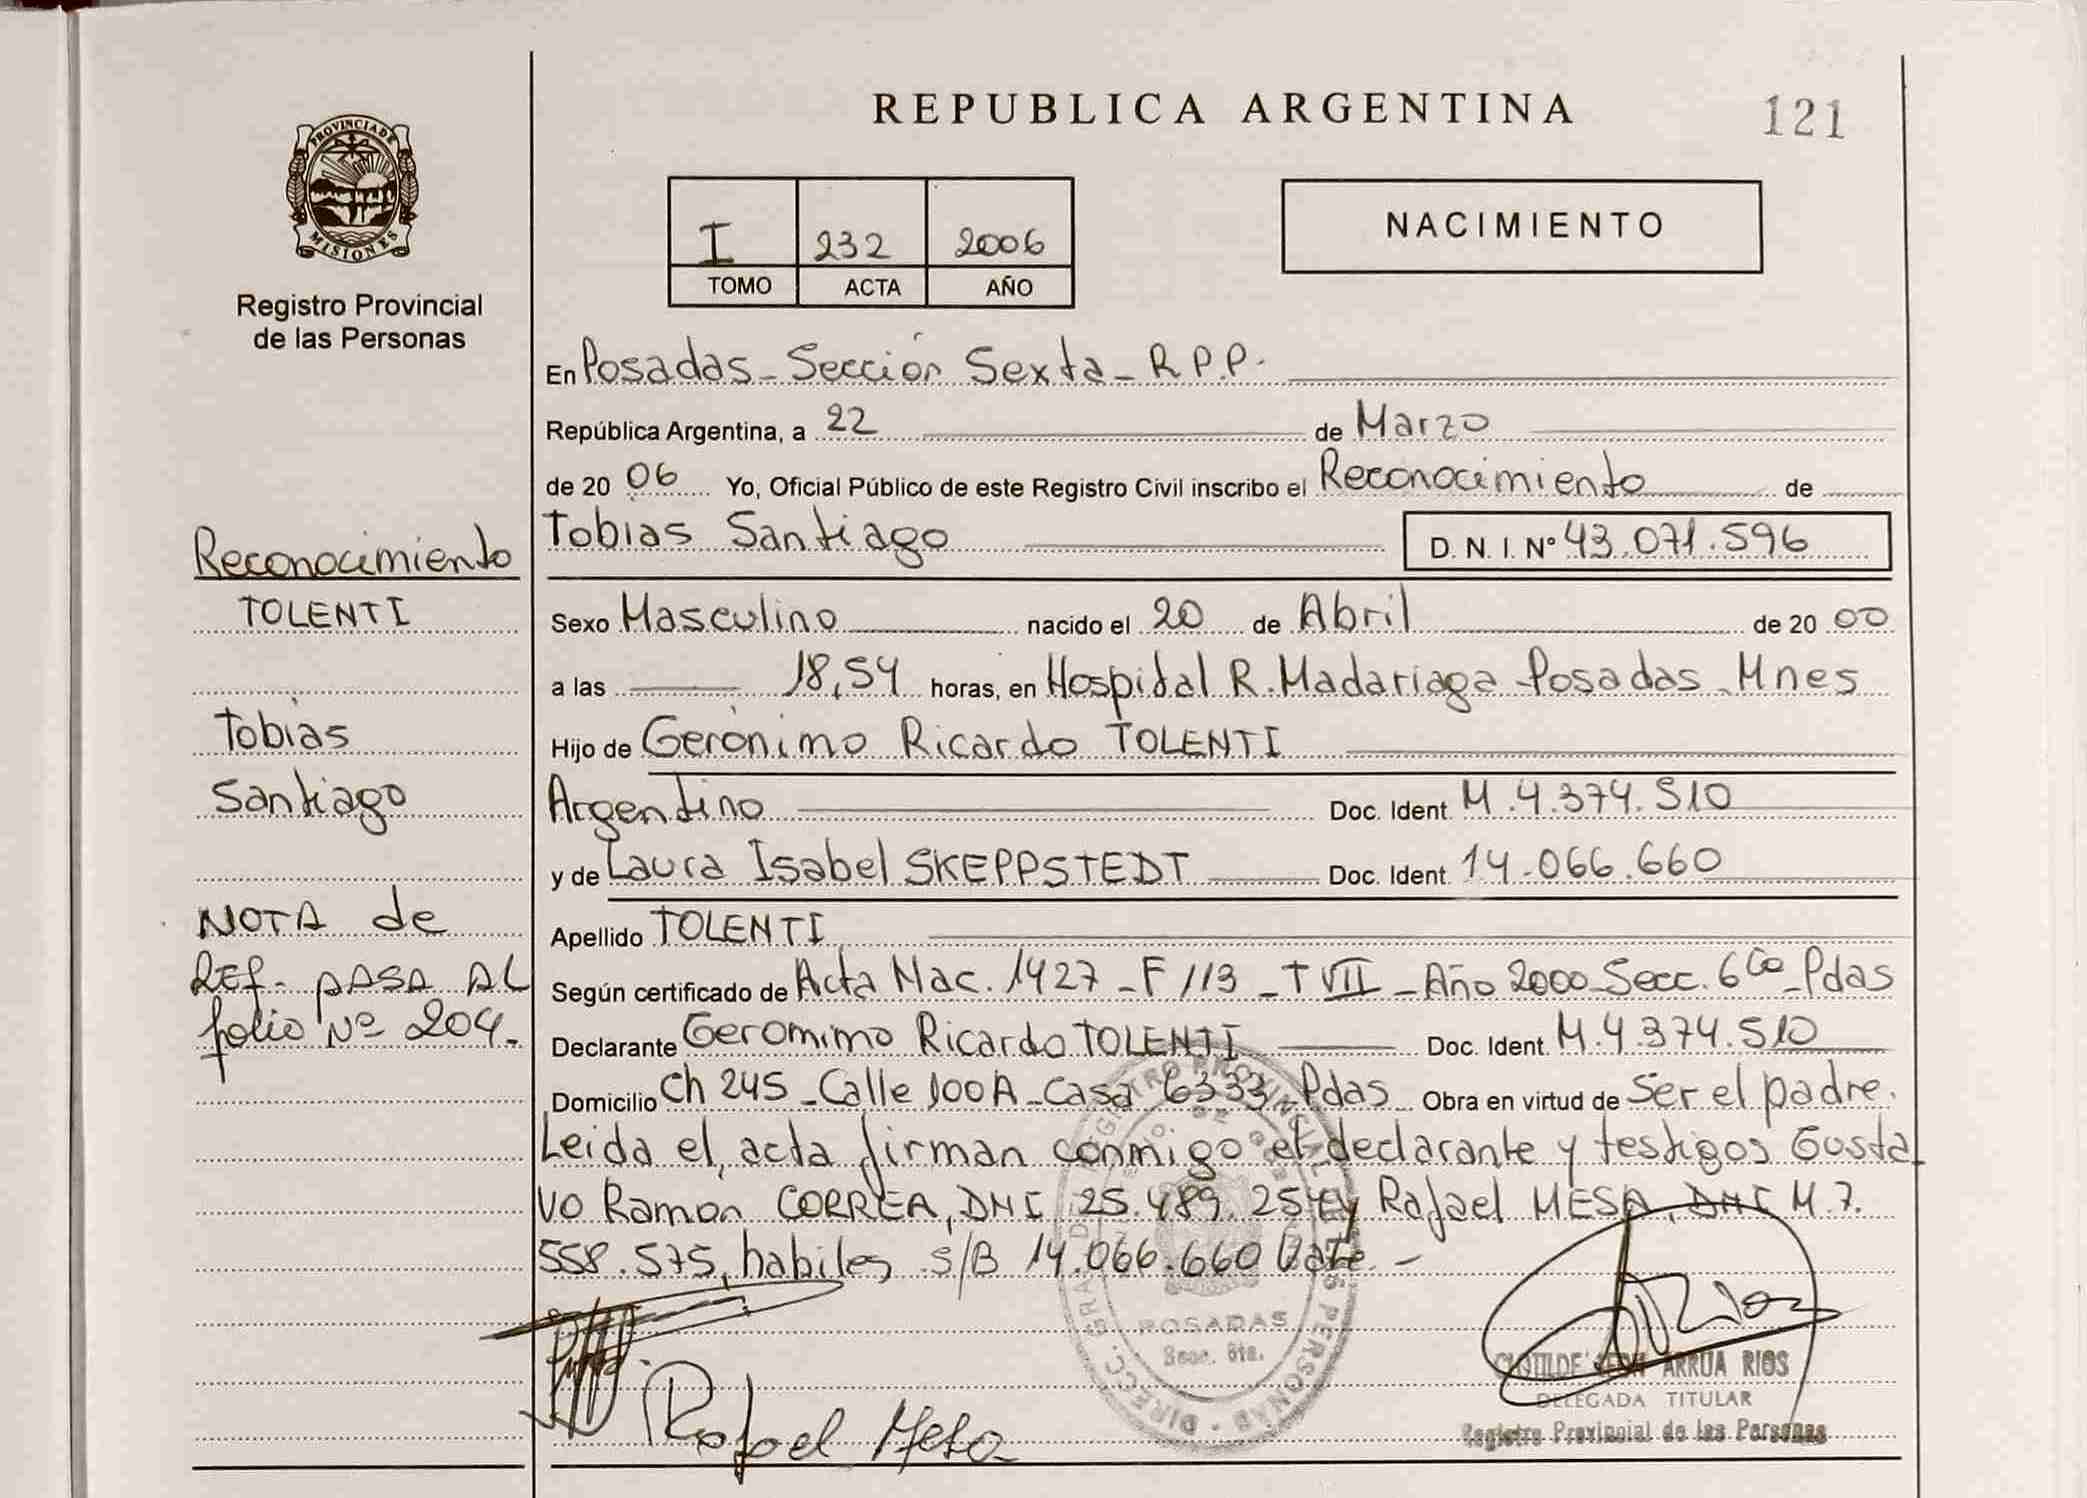 REPUBLICA ARGENTINA
121
PROVINCIA DE
MISIONES
Registro Provincial
de las Personas
I 232 2006
TOMO ACTA AÑO
NACIMIENTO
En Posadas - Sección Sexta - R.P.P.
República Argentina, a 22 de Marzo
de 20 06 Yo, Oficial Público de este Registro Civil inscribo el Reconocimiento de
Tobias Santiago D. N. I. N° 43.071.596
Sexo Masculino nacido el 20 de Abril de 20 00
a las 18,54 horas, en Hospital R. Madariaga Posadas - Mnes
Hijo de Gerónimo Ricardo TOLENTI
Argentino Doc. Ident. M.4.374.510
y de Laura Isabel SKEPPSTEDT Doc. Ident. 14.066.660
Apellido TOLENTI
Según certificado de Acta Nac. 1427 - F 113 - T VII - Año 2000 - Secc. 6ta - Pdas
Declarante Geronimo Ricardo TOLENTI Doc. Ident. M.4.374.510
Domicilio Ch 245 - Calle 100 A - Casa 6333 - Pdas Obra en virtud de Ser el padre.
Leida el acta firman conmigo el declarante y testigos Gusta
vo Ramon CORREA, DNI 25.489.254 y Rafael MESA, DNI M.7.
558.575, habiles S/B 14.066.660 Vale. -
Reconocimiento
TOLENTI
Tobias
Santiago
NOTA de
REF. PASA AL
folio Nº 204.
Rafael Mesa
POSADAS
Secc. 6ta.
CLOTILDE ARRUA RIOS
DELEGADA TITULAR
Registro Provincial de las Personas